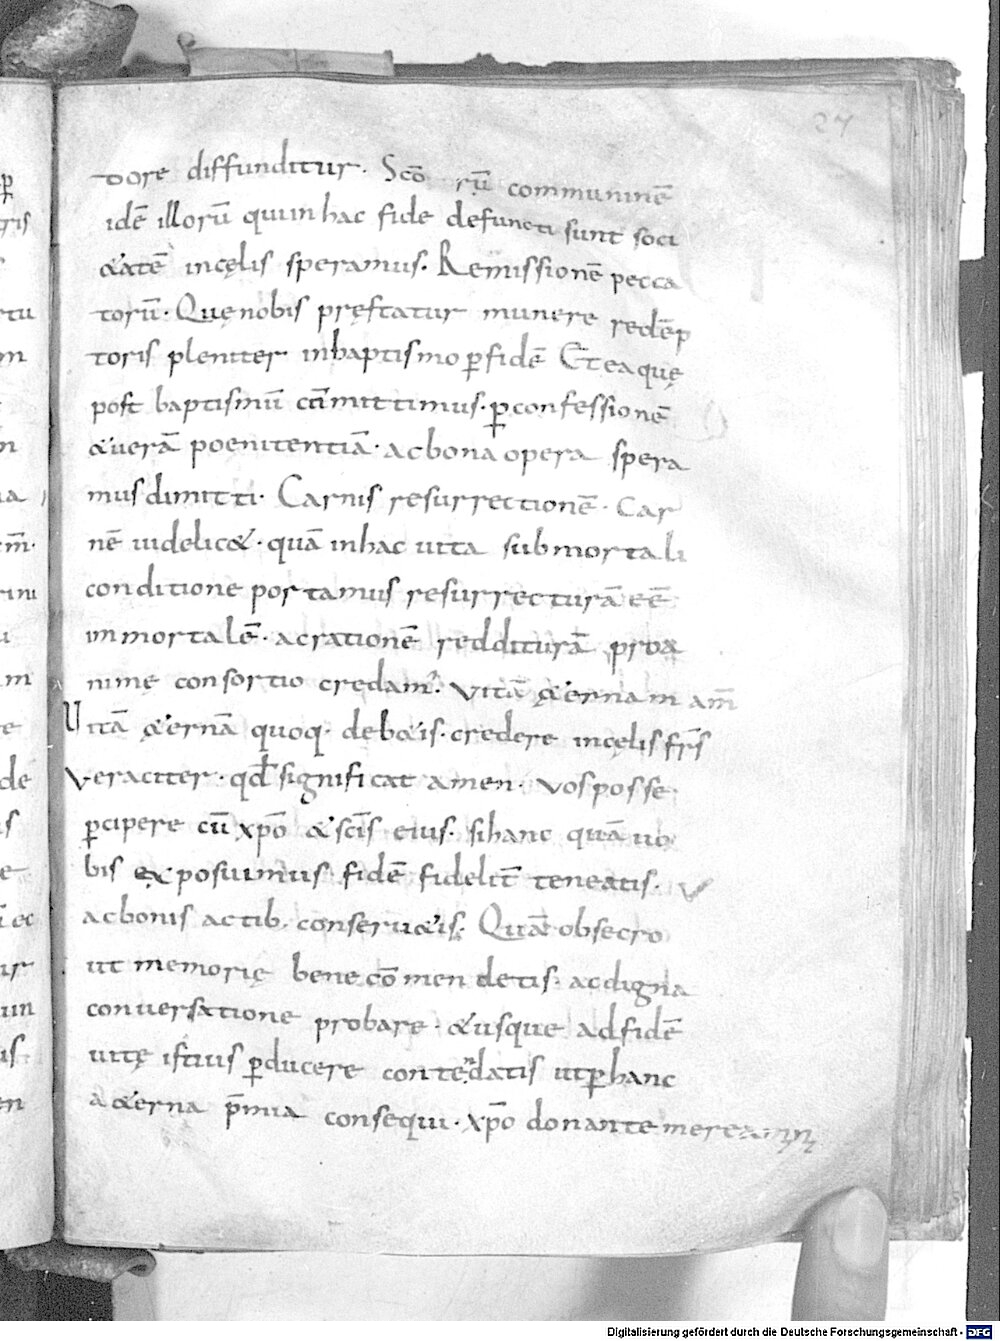 27
dore diffunditur. Scō rū communinē
idē illorū quiinhac fide defuncti sunt soci
&atē incęlis speramus. Remissionē pecca
torū. Quęnobis pręstatur munere redēp
toris pleniter inbaptismo ꝑfidē Et ea quę
post baptismū cūmittimus. ꝑconfessionē
&uerā poenitentiā. acbona opera spera
musdimitti. Carnis resurrectionē. Car
nē uidelic&. quā inhac uita submortali
conditione portamus resurrecturā eē
inmortalē. acrationē redditurā pro
nimę consortio credam᾿. Vitā ę&ernam am̄
Uitā ę&ernā quoq. deb&is. credere incęlis frs̄
veraciter. qđ significat amen. vosposse
ꝑcipere cū xp̄o &scīs eius. sihanc quā uo
bis exposuimus fidē fidelit̄ teneatis.
acbonis actib. conseru&is. Quā obsecro
ut memorię bene cōmendetis. acdigna
conuersatione probare. &usque adfidē
uitę istius ꝑducere contēdatis utꝑhanc
ad&erna p̄mia consequi. xp̄o donante mereamini
Digitalisierung gefördert durch die Deutsche Forschungsgemeinschaft - DFG